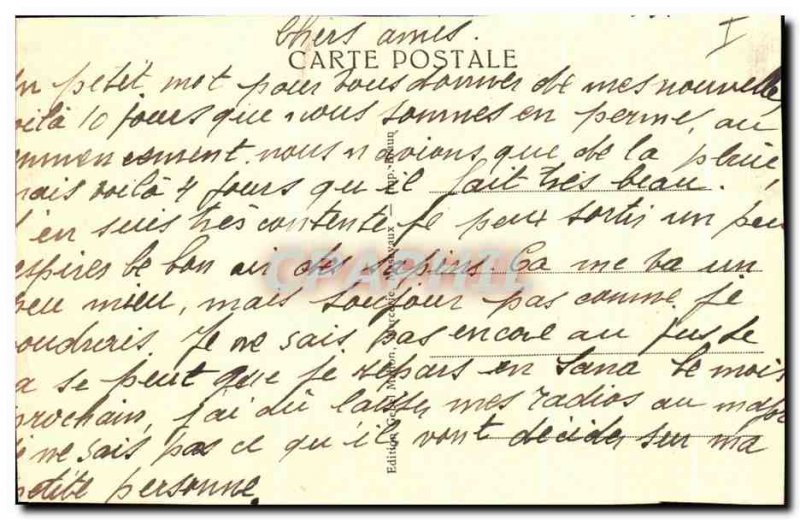 I
Chers amis.
CARTE POSTALE
Un petit mot pour vous donner de mes nouvelles
voilà 10 jours que nous sommes en perme, au
commencement nous n'avions que de la pluie,
mais voilà 4 jours qu'il fait très beau.
J'en suis très contente je peux sortir un peu
respirer le bon air des sapins. Ça me va un
peu mieu, mais toujour pas comme je
voudrais. Je ne sais pas encore au juste
ça se peut que je repars en Sana le mois
prochain, j'ai dû laisser mes radios au
Je ne sais pas ce qu'il vont décider sur ma
petite personne.
CPAPHIL
Edition